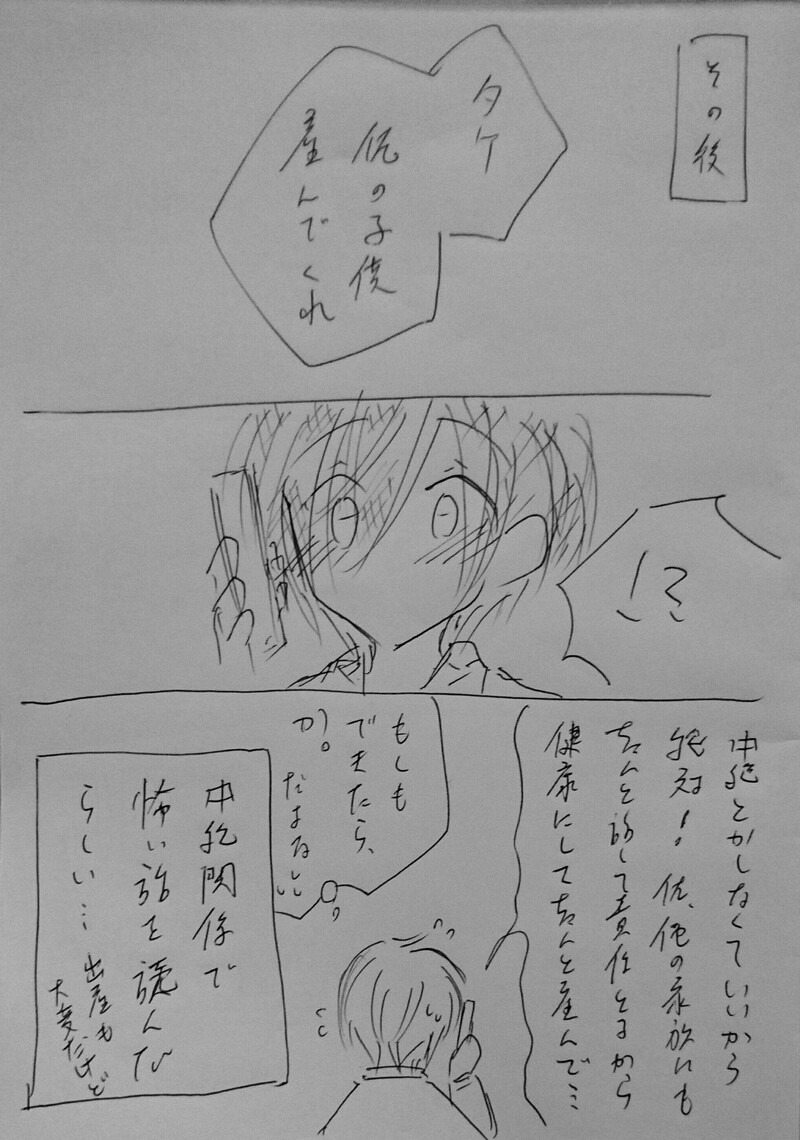 その後
タケ
俺の子供
産んでくれ
!?
中絶とかしなくていいから
絶対！俺、俺の家族にも
ちゃんと話して責任とるから
健康にしてちゃんと産んで…
もしも
できたら、
か。だよな…
中絶関係で
怖い話を読んだ
らしい…
出産も
大変だけど